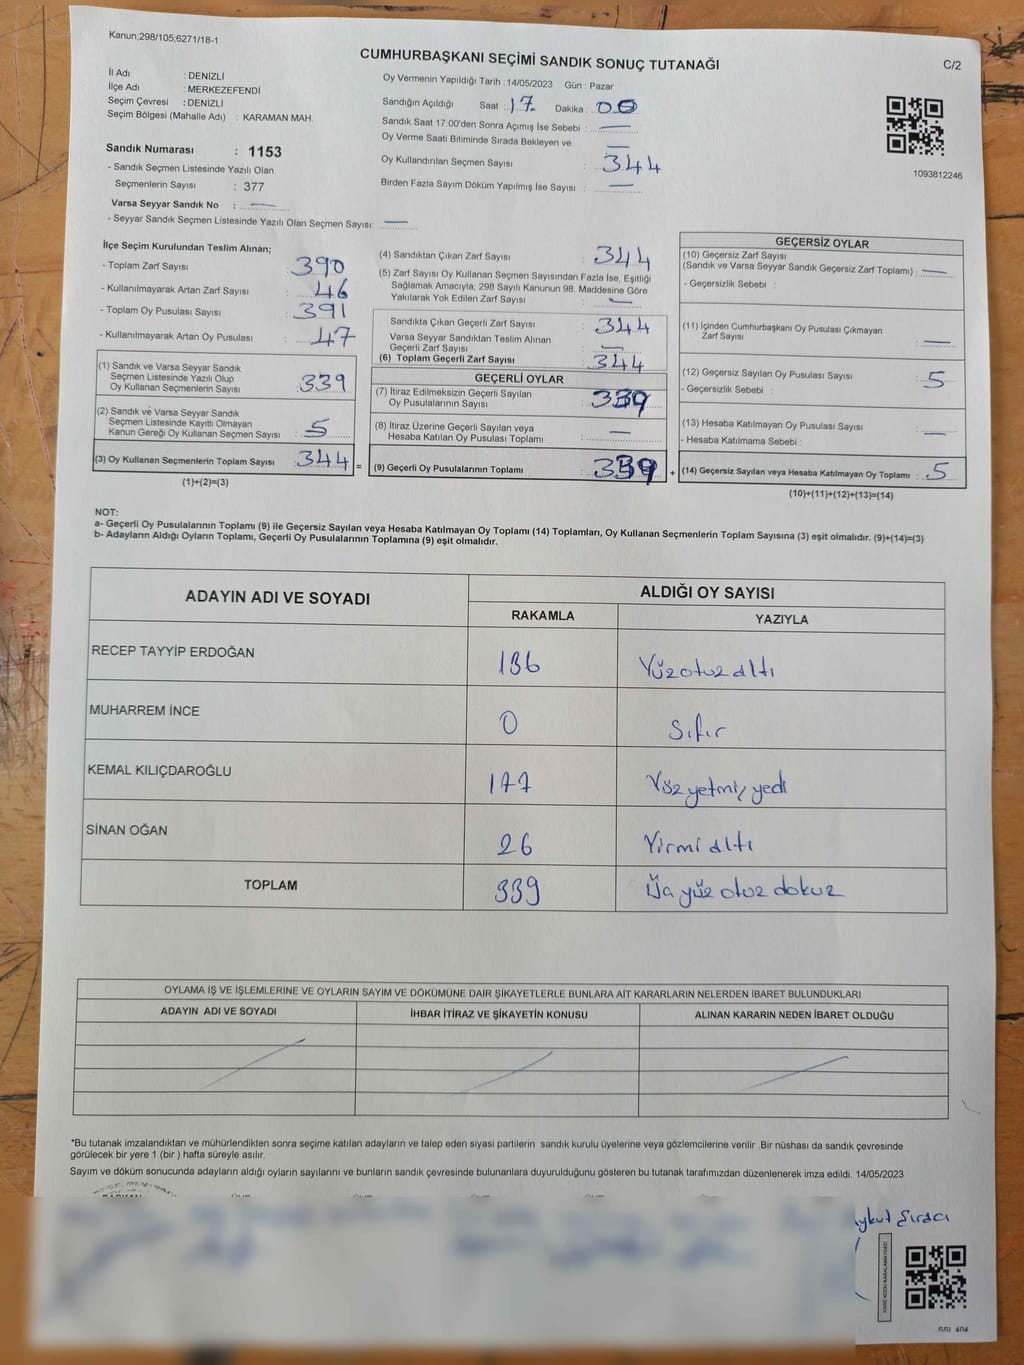 Kanun;298/105,6271/18-1
CUMHURBAŞKANI SEÇİMİ SANDIK SONUÇ TUTANAĞI
C/2
İl Adı : DENİZLİ
İlçe Adı : MERKEZEFENDİ
Seçim Çevresi : DENİZLİ
Seçim Bölgesi (Mahalle Adı) : KARAMAN MAH.
Sandık Numarası : 1153
- Sandık Seçmen Listesinde Yazılı Olan
Seçmenlerin Sayısı : 377
Varsa Seyyar Sandık No : —
- Seyyar Sandık Seçmen Listesinde Yazılı Olan Seçmen Sayısı: —
Oy Vermenin Yapıldığı Tarih : 14/05/2023 Gün : Pazar
Sandığın Açıldığı Saat : 17 Dakika : 00
Sandık Saat 17:00'den Sonra Açımış İse Sebebi : —
Oy Verme Saati Bitiminde Sırada Bekleyen ve —
Oy Kullandırılan Seçmen Sayısı : 344
Birden Fazla Sayım Döküm Yapılmış İse Sayısı : —
1093812246
İlçe Seçim Kurulundan Teslim Alınan;
- Toplam Zarf Sayısı : 390
- Kullanılmayarak Artan Zarf Sayısı : 46
- Toplam Oy Pusulası Sayısı : 391
- Kullanılmayarak Artan Oy Pusulası : 47
(1) Sandık ve Varsa Seyyar Sandık
Seçmen Listesinde Yazılı Olup
Oy Kullanan Seçmenlerin Sayısı : 339
(2) Sandık ve Varsa Seyyar Sandık
Seçmen Listesinde Kayıtlı Olmayan
Kanun Gereği Oy Kullanan Seçmen Sayısı : 5
(3) Oy Kullanan Seçmenlerin Toplam Sayısı : 344 =
(1)+(2)=(3)
(4) Sandıktan Çıkan Zarf Sayısı : 344
(5) Zarf Sayısı Oy Kullanan Seçmen Sayısından Fazla İse, Eşitliği
Sağlamak Amacıyla, 298 Sayılı Kanunun 98. Maddesine Göre
Yakılarak Yok Edilen Zarf Sayısı : —
Sandıkta Çıkan Geçerli Zarf Sayısı : 344
Varsa Seyyar Sandıktan Teslim Alınan
Geçerli Zarf Sayısı : —
(6) Toplam Geçerli Zarf Sayısı : 344
GEÇERLİ OYLAR
(7) İtiraz Edilmeksizin Geçerli Sayılan
Oy Pusulalarının Sayısı : 339
(8) İtiraz Üzerine Geçerli Sayılan veya
Hesaba Katılan Oy Pusulası Toplamı : —
(9) Geçerli Oy Pusulalarının Toplamı : 339 +
GEÇERSİZ OYLAR
(10) Geçersiz Zarf Sayısı
(Sandık ve Varsa Seyyar Sandık Geçersiz Zarf Toplamı) : —
- Geçersizlik Sebebi :
(11) İçinden Cumhurbaşkanı Oy Pusulası Çıkmayan
Zarf Sayısı : —
(12) Geçersiz Sayılan Oy Pusulası Sayısı : 5
- Geçersizlik Sebebi :
(13) Hesaba Katılmayan Oy Pusulası Sayısı : —
- Hesaba Katılmama Sebebi :
(14) Geçersiz Sayılan veya Hesaba Katılmayan Oy Toplamı : 5
(10)+(11)+(12)+(13)=(14)
NOT:
a- Geçerli Oy Pusulalarının Toplamı (9) ile Geçersiz Sayılan veya Hesaba Katılmayan Oy Toplamı (14) Toplamları, Oy Kullanan Seçmenlerin Toplam Sayısına (3) eşit olmalıdır. (9)+(14)=(3)
b- Adayların Aldığı Oyların Toplamı, Geçerli Oy Pusulalarının Toplamına (9) eşit olmalıdır.
ADAYIN ADI VE SOYADI ALDIĞI OY SAYISI
RAKAMLA YAZIYLA
RECEP TAYYİP ERDOĞAN 136 Yüzotuzaltı
MUHARREM İNCE 0 Sıfır
KEMAL KILIÇDAROĞLU 177 Yüzyetmiş yedi
SİNAN OĞAN 26 Yirmialtı
TOPLAM 339 Üç yüz otuz dokuz
OYLAMA İŞ VE İŞLEMLERİNE VE OYLARIN SAYIM VE DÖKÜMÜNE DAİR ŞİKAYETLERLE BUNLARA AİT KARARLARIN NELERDEN İBARET BULUNDUKLARI
ADAYIN ADI VE SOYADI İHBAR İTİRAZ VE ŞİKAYETİN KONUSU ALINAN KARARIN NEDEN İBARET OLDUĞU
*Bu tutanak imzalandıktan ve mühürlendikten sonra seçime katılan adayların ve talep eden siyasi partilerin sandık kurulu üyelerine veya gözlemcilerine verilir .Bir nüshası da sandık çevresinde
görülecek bir yere 1 (bir ) hafta süreyle asılır.
Sayım ve döküm sonucunda adayların aldığı oyların sayılarını ve bunların sandık çevresinde bulunanlara duyurulduğunu gösteren bu tutanak tarafımızdan düzenlenerek imza edildi. 14/05/2023